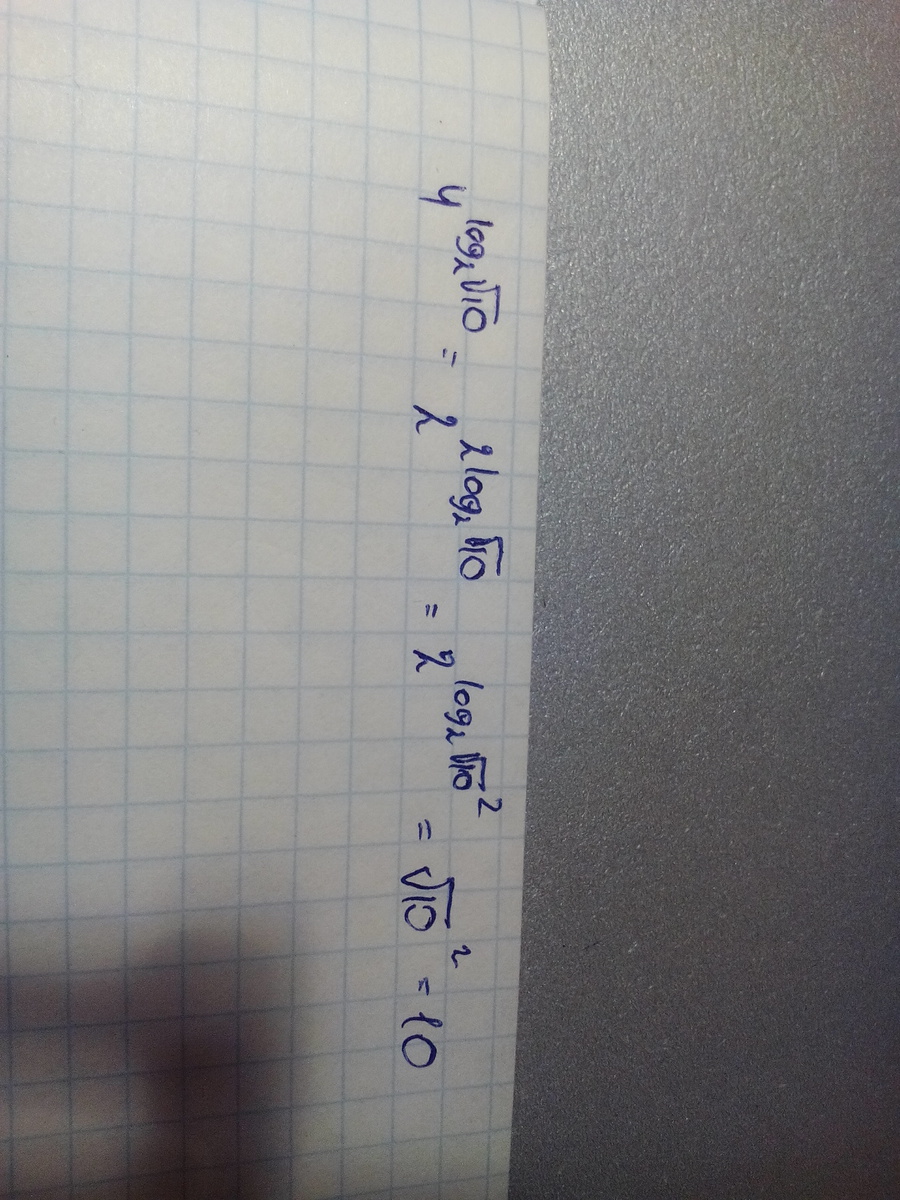 4^{log_2 √10} = 2^{2 log_2 √10} = 2^{log_2 √10^2} = √10^2 = 10